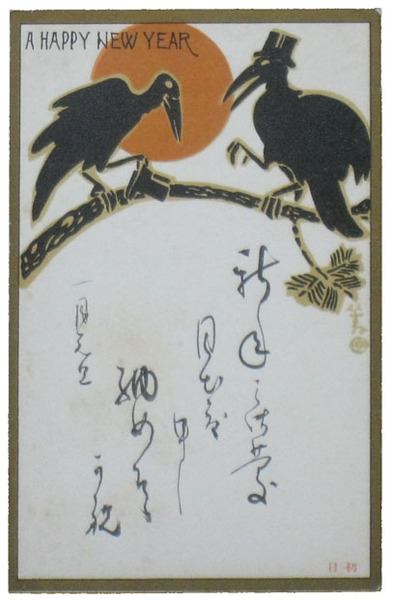 A HAPPY NEW YEAR
新年之御慶
目出度
申し
納め候
可祝
一月元旦